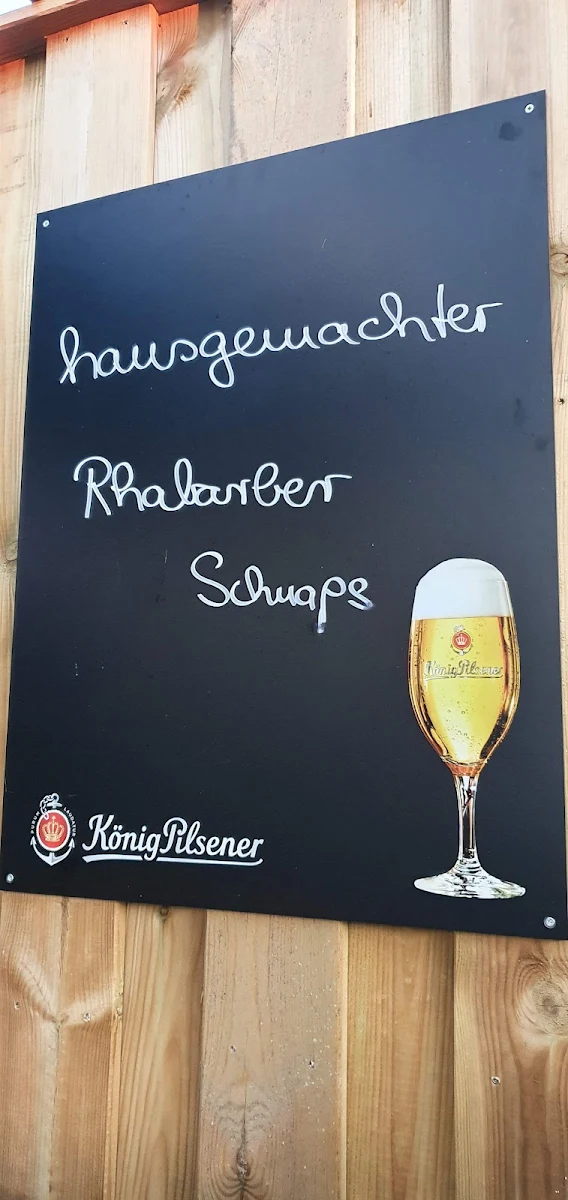 hausgemachter
Rhabarber
Schnaps
König Pilsener
KönigPilsener